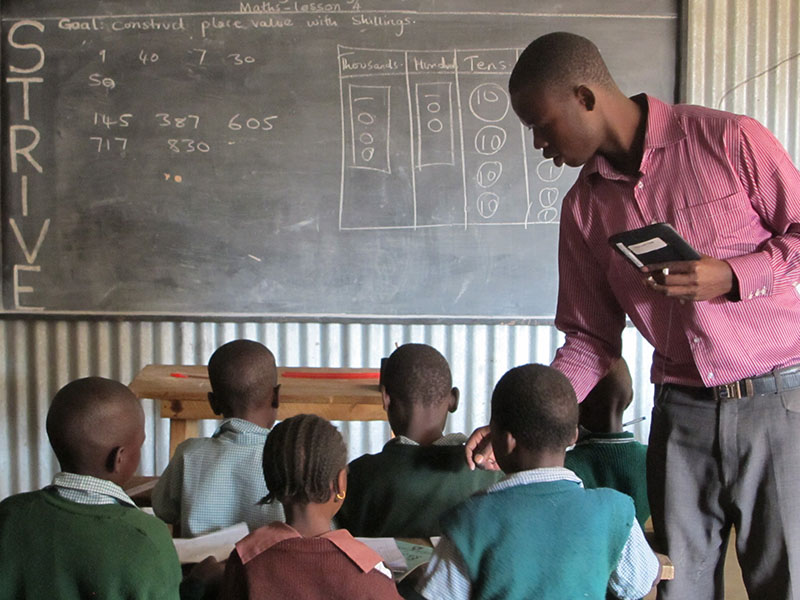 Maths - Lesson 4
Goal: Construct place value with Skillings.
STRIVE
1 40 7 30
145 387 605
717 830
Thousands Hundred Tens
1000 100 10
10
10 1
10 1
10